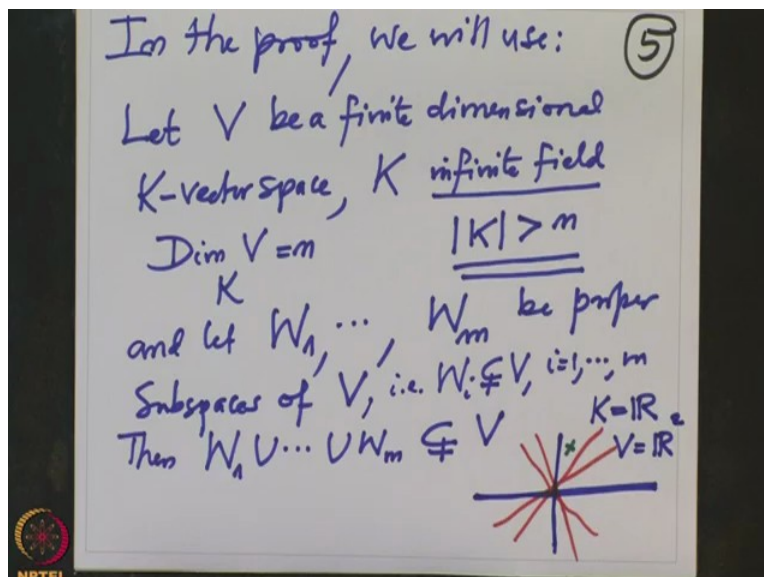 In the proof, we will use:
5
Let V be a finite dimensional
K-vector space, K infinite field
Dim V = n |K| > m
K
and let W₁, ..., Wₘ be proper
Subspaces of V, i.e. Wᵢ ⊊ V, i=1, ..., m
K = ℝ
Then W₁ ∪ ... ∪ Wₘ ⊊ V
V = ℝ²
NPTEL